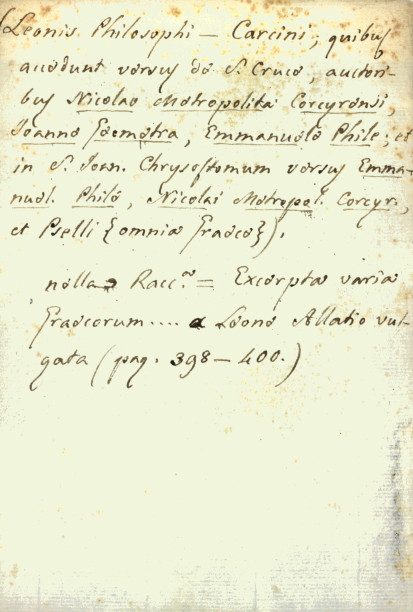 (Leonis Philosophi — Carcini; quibus
accedunt versus de S. Cruce, auctori-
bus Nicolao Metropolita Corcyrensi,
Joanne Geometra, Emmanuele Phile; et
in S. Joan. Chrysostomum versus Emma-
nuel. Phile, Nicolai Metropol. Corcyr.,
et Pselli {omnia Graece}).
nella Racc.ne = Excerpta varia
Graecorum .... a Leone Allatio vul-
gata (pag. 398 — 400.)